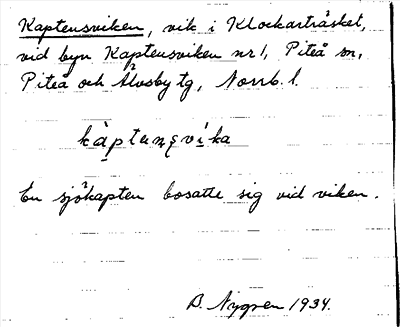 Kaptensviken, vik i Klockarträsket,
vid byn Kaptensviken nr 1, Piteå sn,
Piteå och Älvsby tg, Norrb. l.
kàptensvíka
En sjökapten bosatte sig vid viken.
B. Nygren 1934.